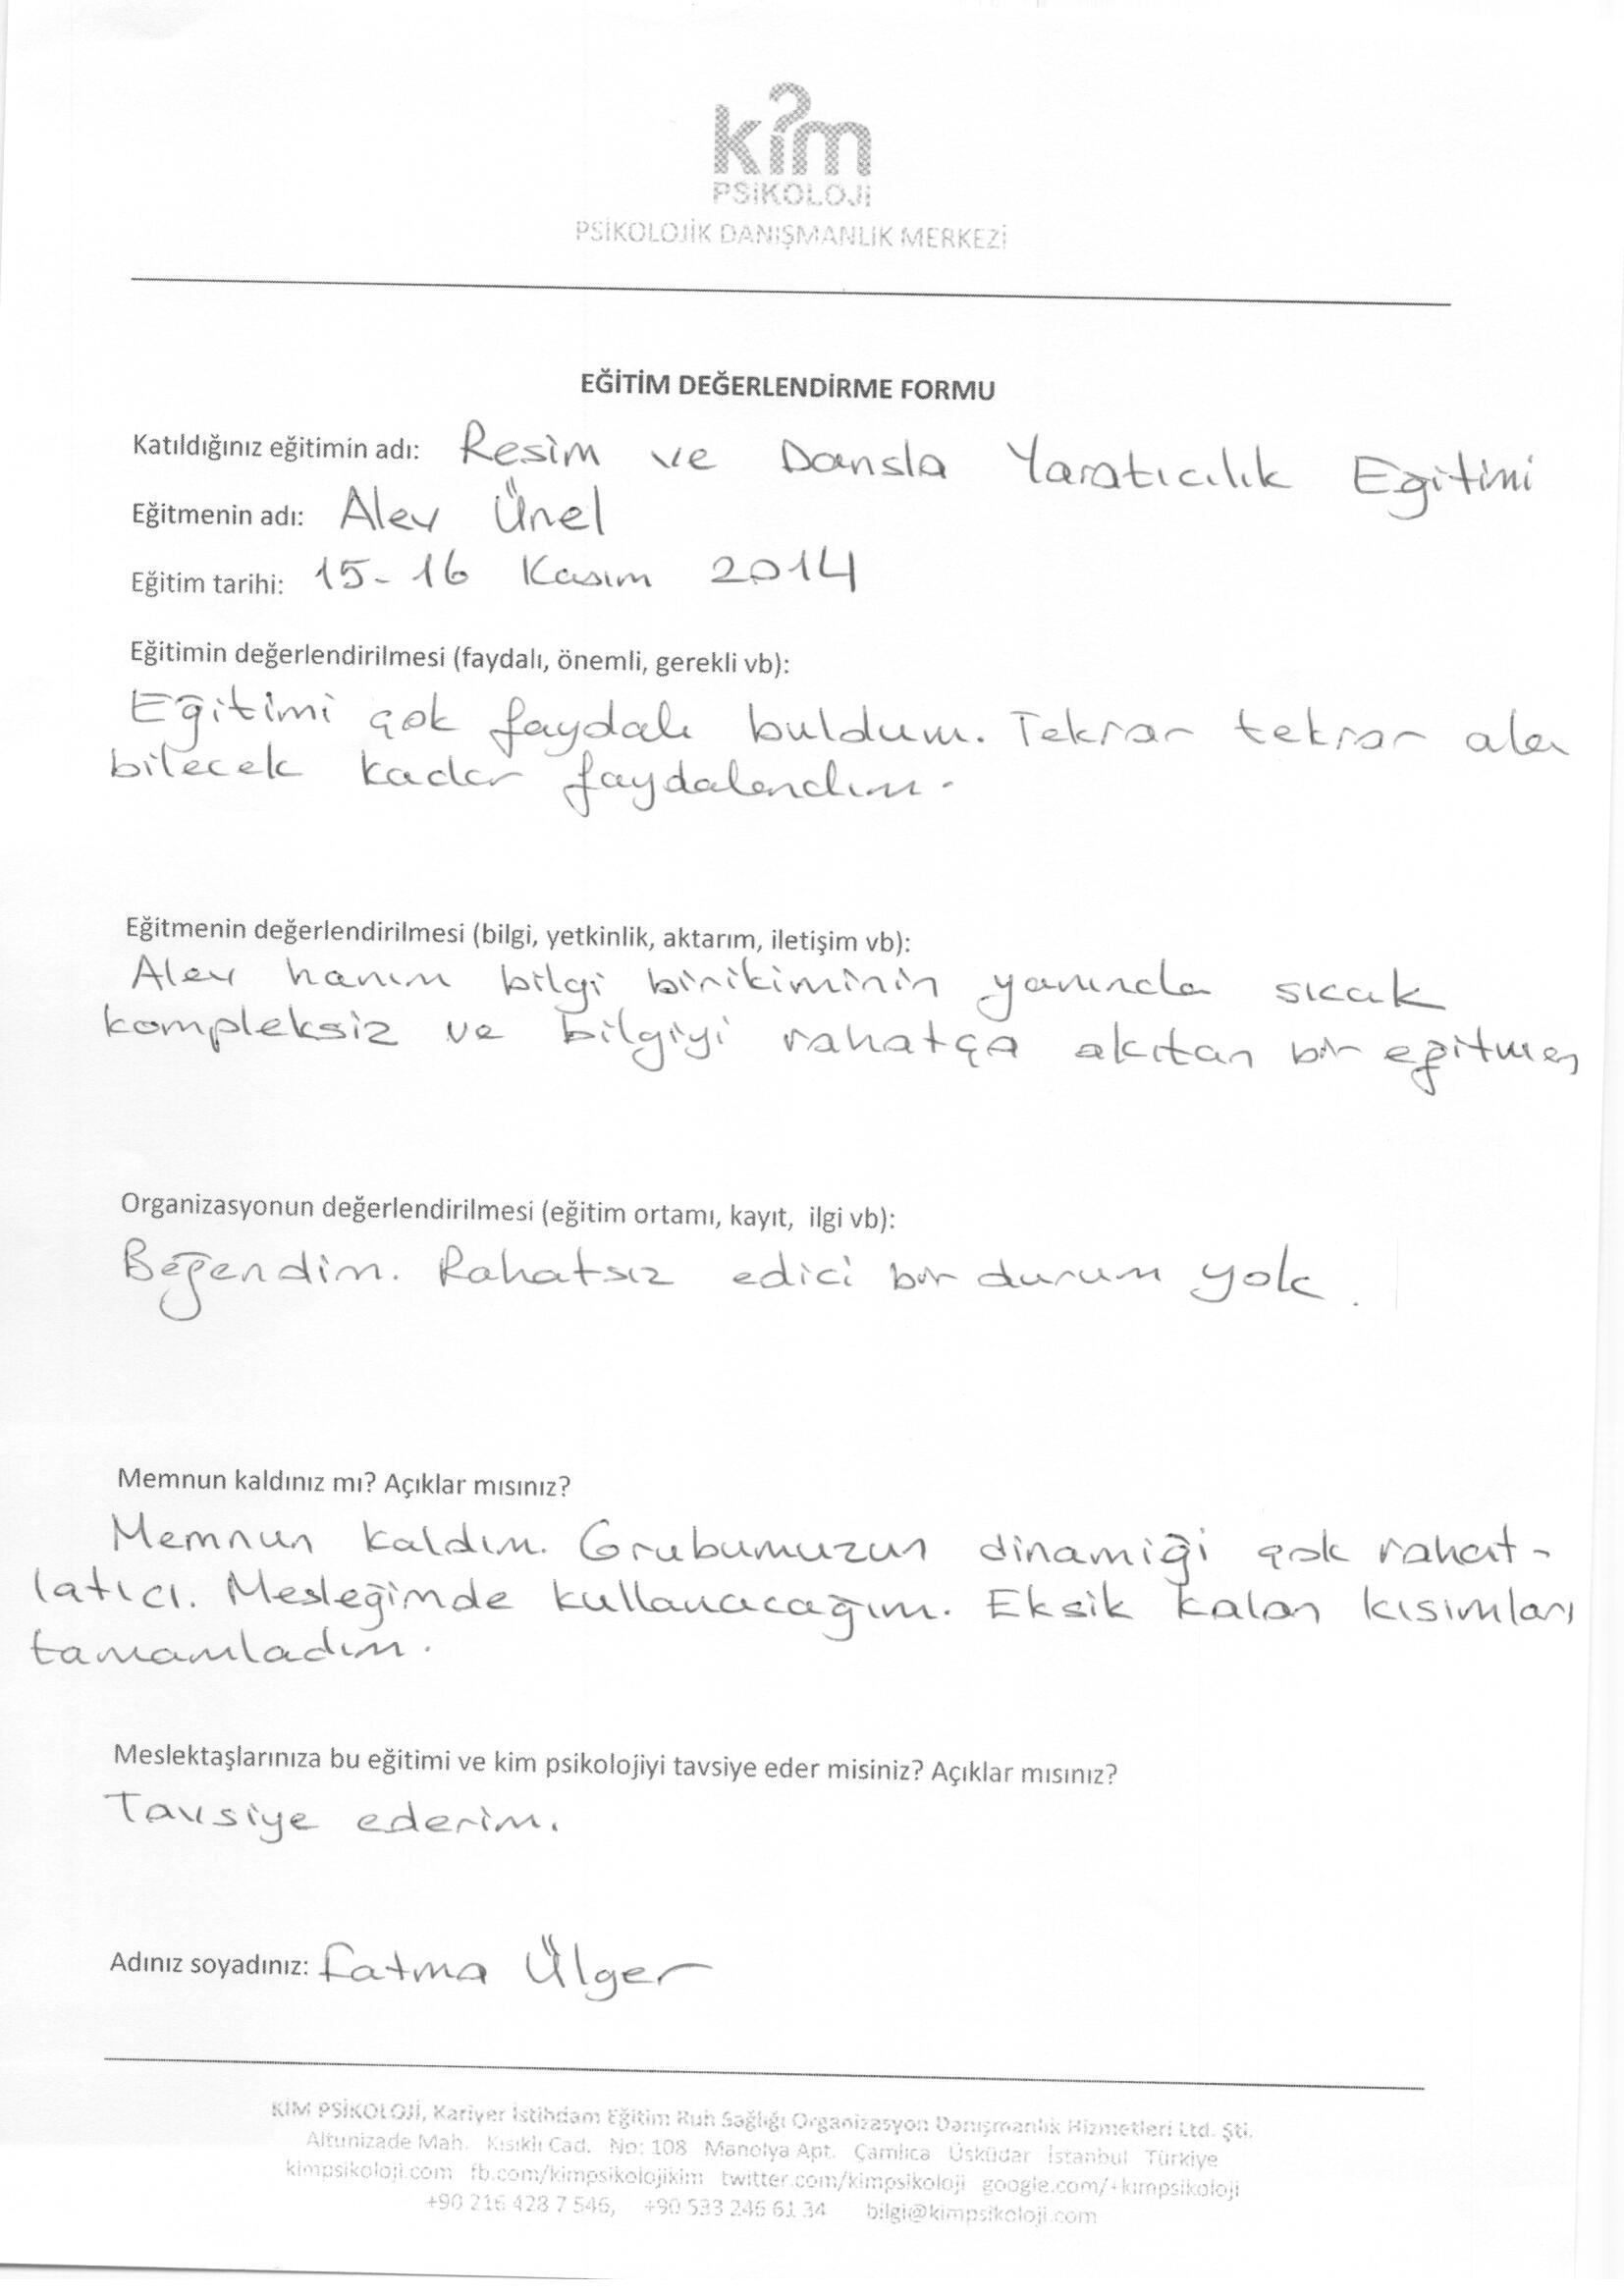 kim
PSİKOLOJİ
PSİKOLOJİK DANIŞMANLIK MERKEZİ
EĞİTİM DEĞERLENDİRME FORMU
Katıldığınız eğitimin adı: Resim ve Dansla Yaratıcılık Eğitimi
Eğitmenin adı: Alev Ünel
Eğitim tarihi: 15-16 Kasım 2014
Eğitimin değerlendirilmesi (faydalı, önemli, gerekli vb):
Eğitimi çok faydalı buldum. Tekrar tekrar ala
bilecek kadar faydalandım.
Eğitmenin değerlendirilmesi (bilgi, yetkinlik, aktarım, iletişim vb):
Alev hanım bilgi birikiminin yanında sıcak
kompleksiz ve bilgiyi rahatça akıtan bir eğitmen
Organizasyonun değerlendirilmesi (eğitim ortamı, kayıt, ilgi vb):
Beğendim. Rahatsız edici bir durum yok.
Memnun kaldınız mı? Açıklar mısınız?
Memnun kaldım. Grubumuzun dinamiği çok rahat-
latıcı. Mesleğimde kullanacağım. Eksik kalan kısımları
tamamladım.
Meslektaşlarınıza bu eğitimi ve kim psikolojiyi tavsiye eder misiniz? Açıklar mısınız?
Tavsiye ederim.
Adınız soyadınız: Fatma Ülger
KİM PSİKOLOJİ, Kariyer İstihdam Eğitim Ruh Sağlığı Organizasyon Danışmanlık Hizmetleri Ltd. Şti.
Altunizade Mah. Kısıklı Cad. No: 108 Manolya Apt. Çamlıca Üsküdar İstanbul Türkiye
kimpsikoloji.com fb.com/kimpsikolojikim twitter.com/kimpsikoloji google.com/+kimpsikoloji
+90 216 428 7 546, +90 533 246 61 34 bilgi@kimpsikoloji.com